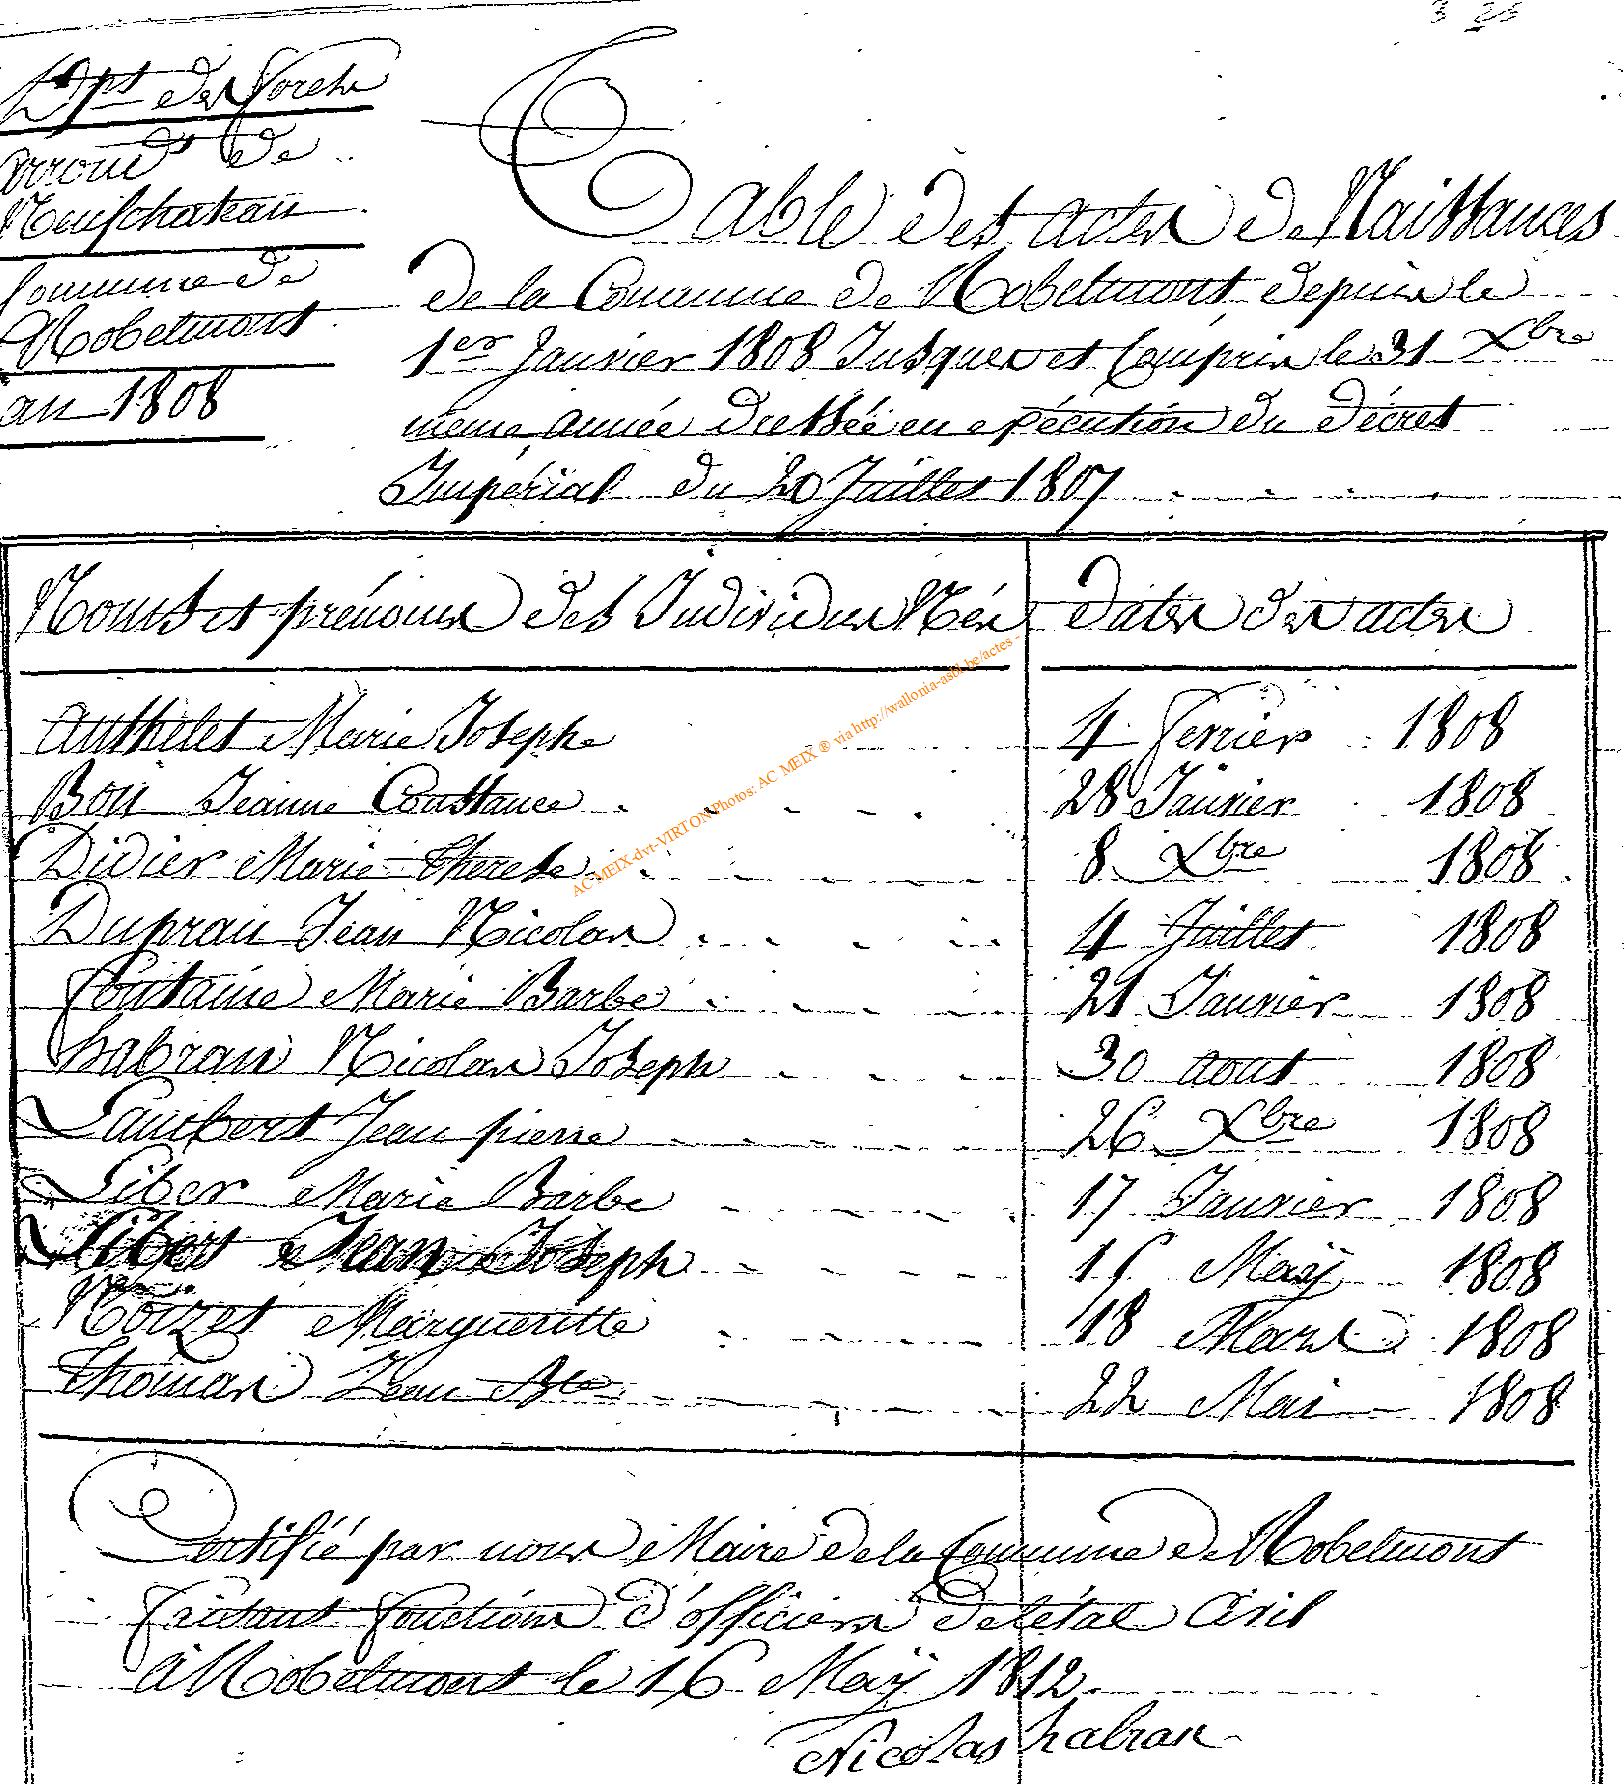 3 25
Dpt des Forets
Arrond.t de
Neufchateau
Commune de
Robelmont
an 1808
Table des actes de Naissances
de la Commune de Robelmont, depuis le
1er Janvier 1808 Jusques et Compris le 31 Xbre
meme année dressée en exécution du décret
Impérial du 20 Juillet 1807
Noms et prénoms des Individus Nés dates des actes
Authelet Marie Josephe 4 Fevrier 1808
Bon Jeanne Constance 28 Janvier 1808
Didier Marie Therese 8 Xbre 1808
Duprau Jean Nicolas 4 Juillet 1808
Fontaine Marie Barbe 21 Janvier 1808
habran Nicolas Joseph 30 aout 1808
Lambert Jean pierre 26 Xbre 1808
Liber Marie Barbe 17 Janvier 1808
Libert Jean Joseph 15 Maÿ 1808
Noizet Margueritte 18 Mars 1808
Thomas Jean Bte 22 Mai 1808
Certifié par nous Maire de la Commune de Robelmont
faisant fonctions d'officiers de létat Civil
à Robelmont le 16 Maÿ 1812.
Nicolas habran
AC MEIX-dvt-VIRTON Photos: AC MEIX ® via http://wallonia-asbl.be/actes -